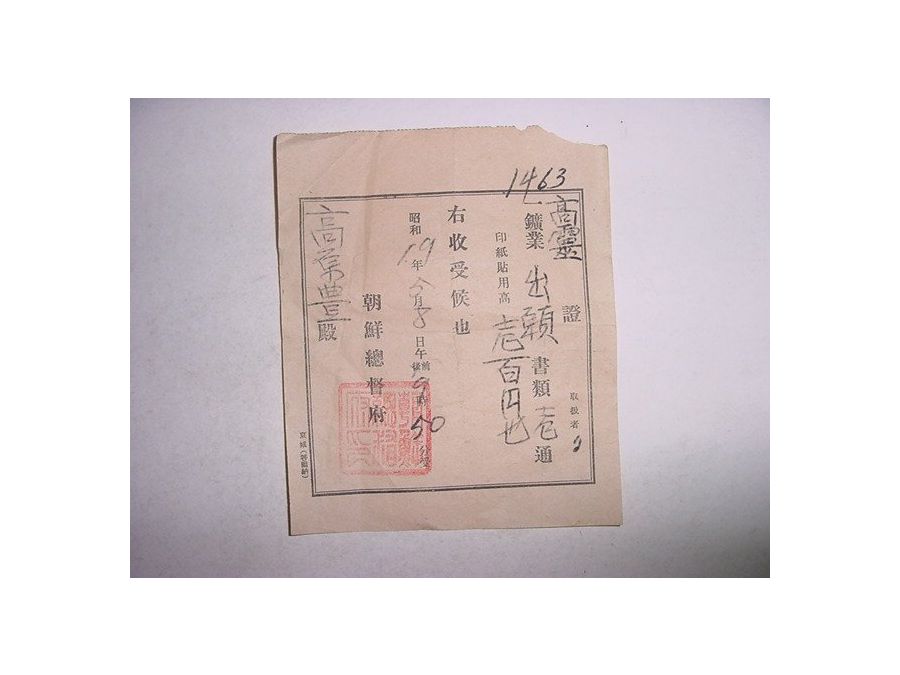 1463
高靈
證
取扱者
一鑛業出願書類壱通
印紙貼用高壱百円也
右收受候也
昭和19年 月 日午前後9時50分
朝鮮總督府
高 豊殿